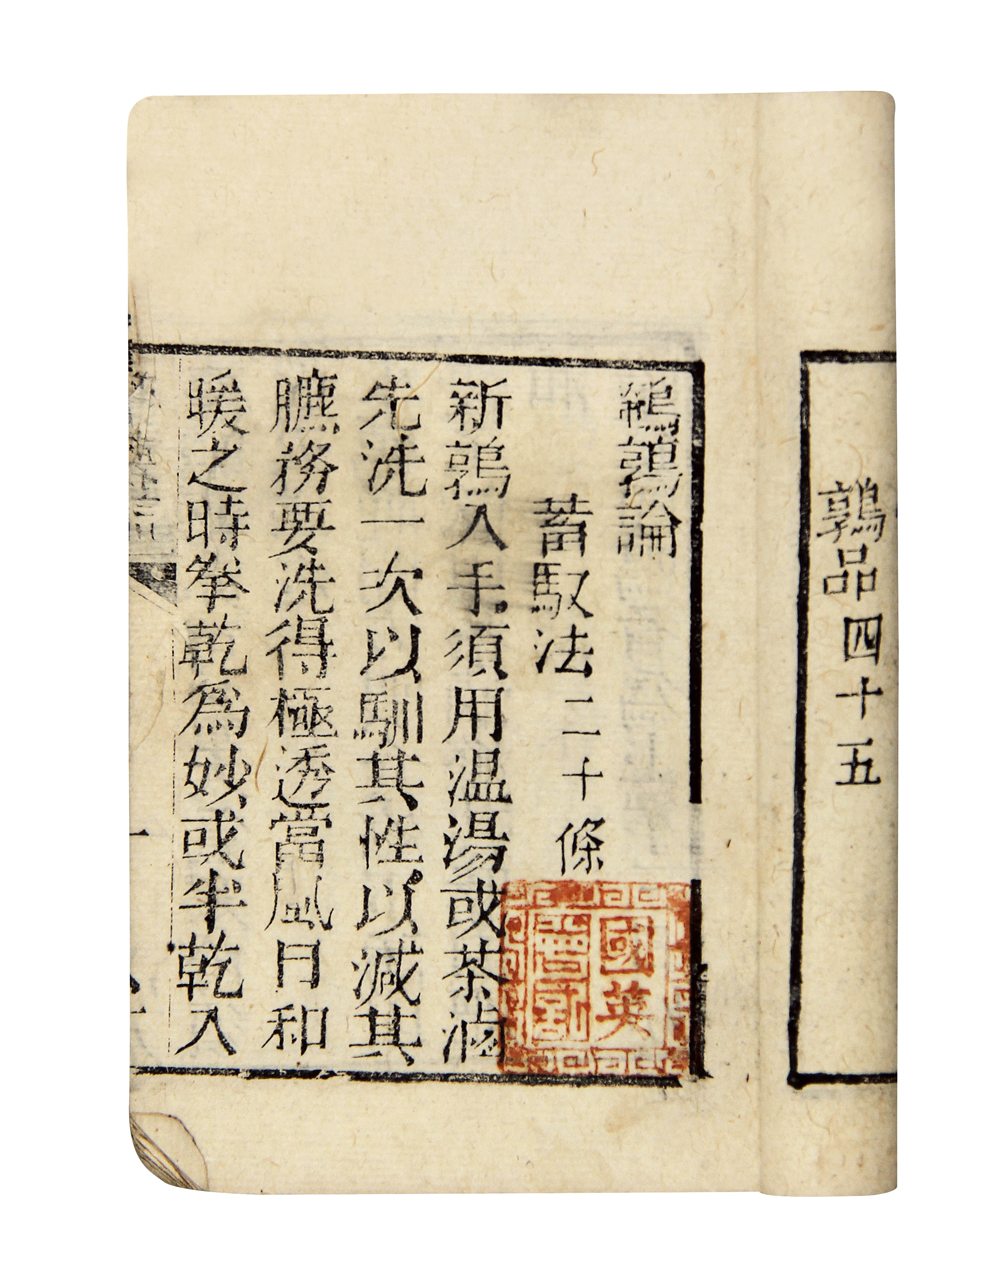 鶉品四十五
鵪鶉論
蓄馭法二十條
新鶉入手須用温湯或茶滷
先洗一次以馴其性以減其
臕務要洗得極透當風日和
暖之時拳乾為妙或半乾入
國英